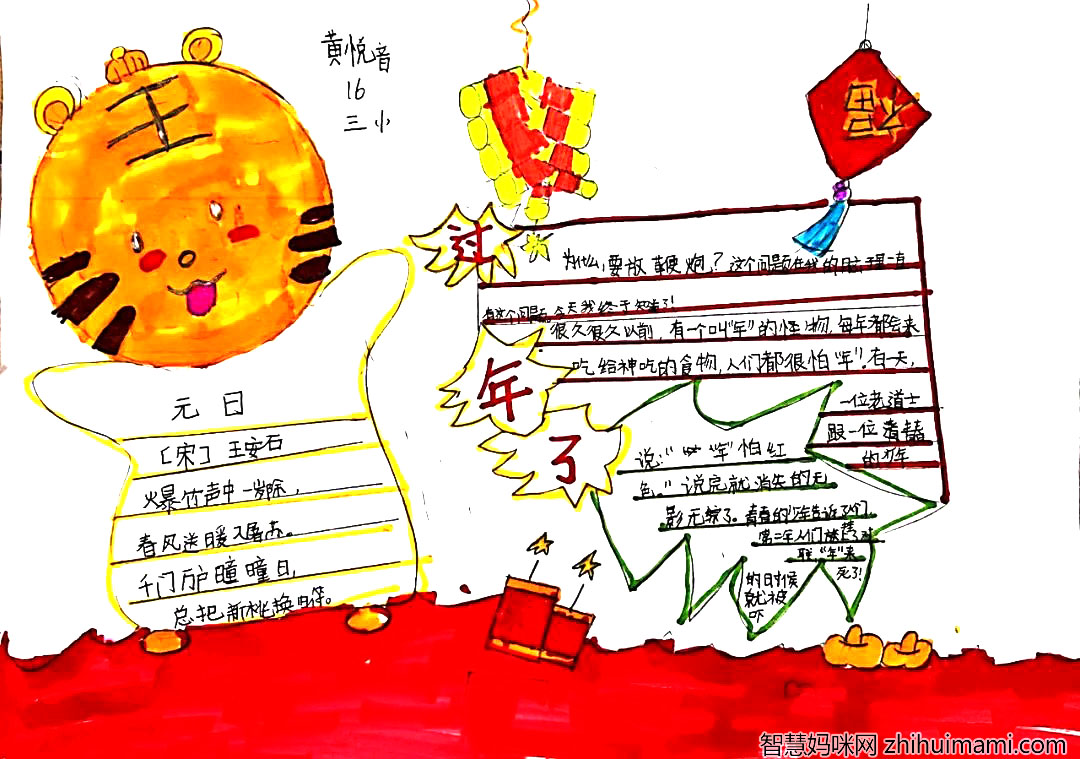 黄悦音
16
三小
王
福
元日
[宋] 王安石
火暴竹声中一岁除,
春风送暖入屠苏。
千门万户瞳瞳日,
总把新桃换旧符。
过
年
了
为什么,要放鞭炮,?这个问题在我的脑子里一直
有这个问题。今天我终于知道了!
很久很久以前,有一个叫"年"的怪物,每年都会来
吃给神吃的食物,人们都很怕"年"!有一天,
一位老道士
跟一位青
的少年
说:"年"怕红
色。"说完就消失的无
影无踪了。的少年告诉了人们,
第二年人们对
联,"年"来
的时候
就被
吓
死了!
智慧妈咪网 zhihuimami.com